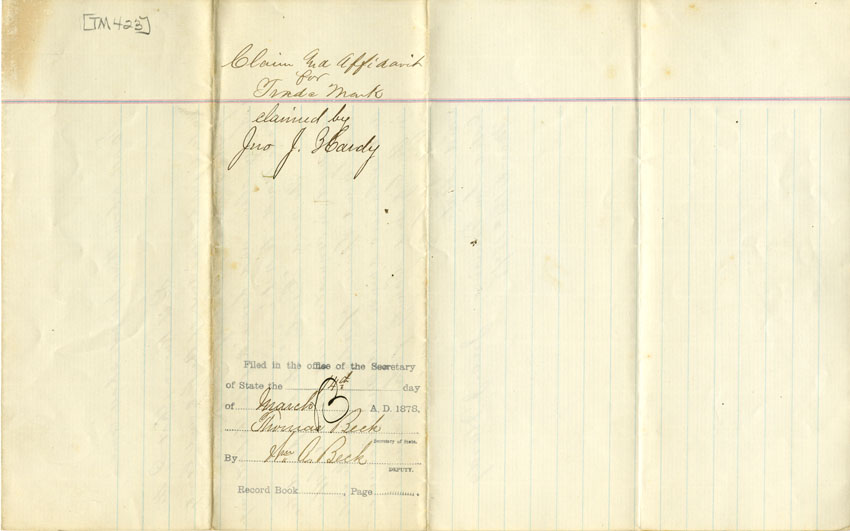 [TM423]
Claim and Affidavit
for
Trade Mark
claimed by
Jno J. Hardy
Filed in the office of the Secretary
of State the 14th day
of March A. D. 1878,
Thomas Beck
Secretary of State.
By Wm A. Beck
DEPUTY.
Record Book , Page